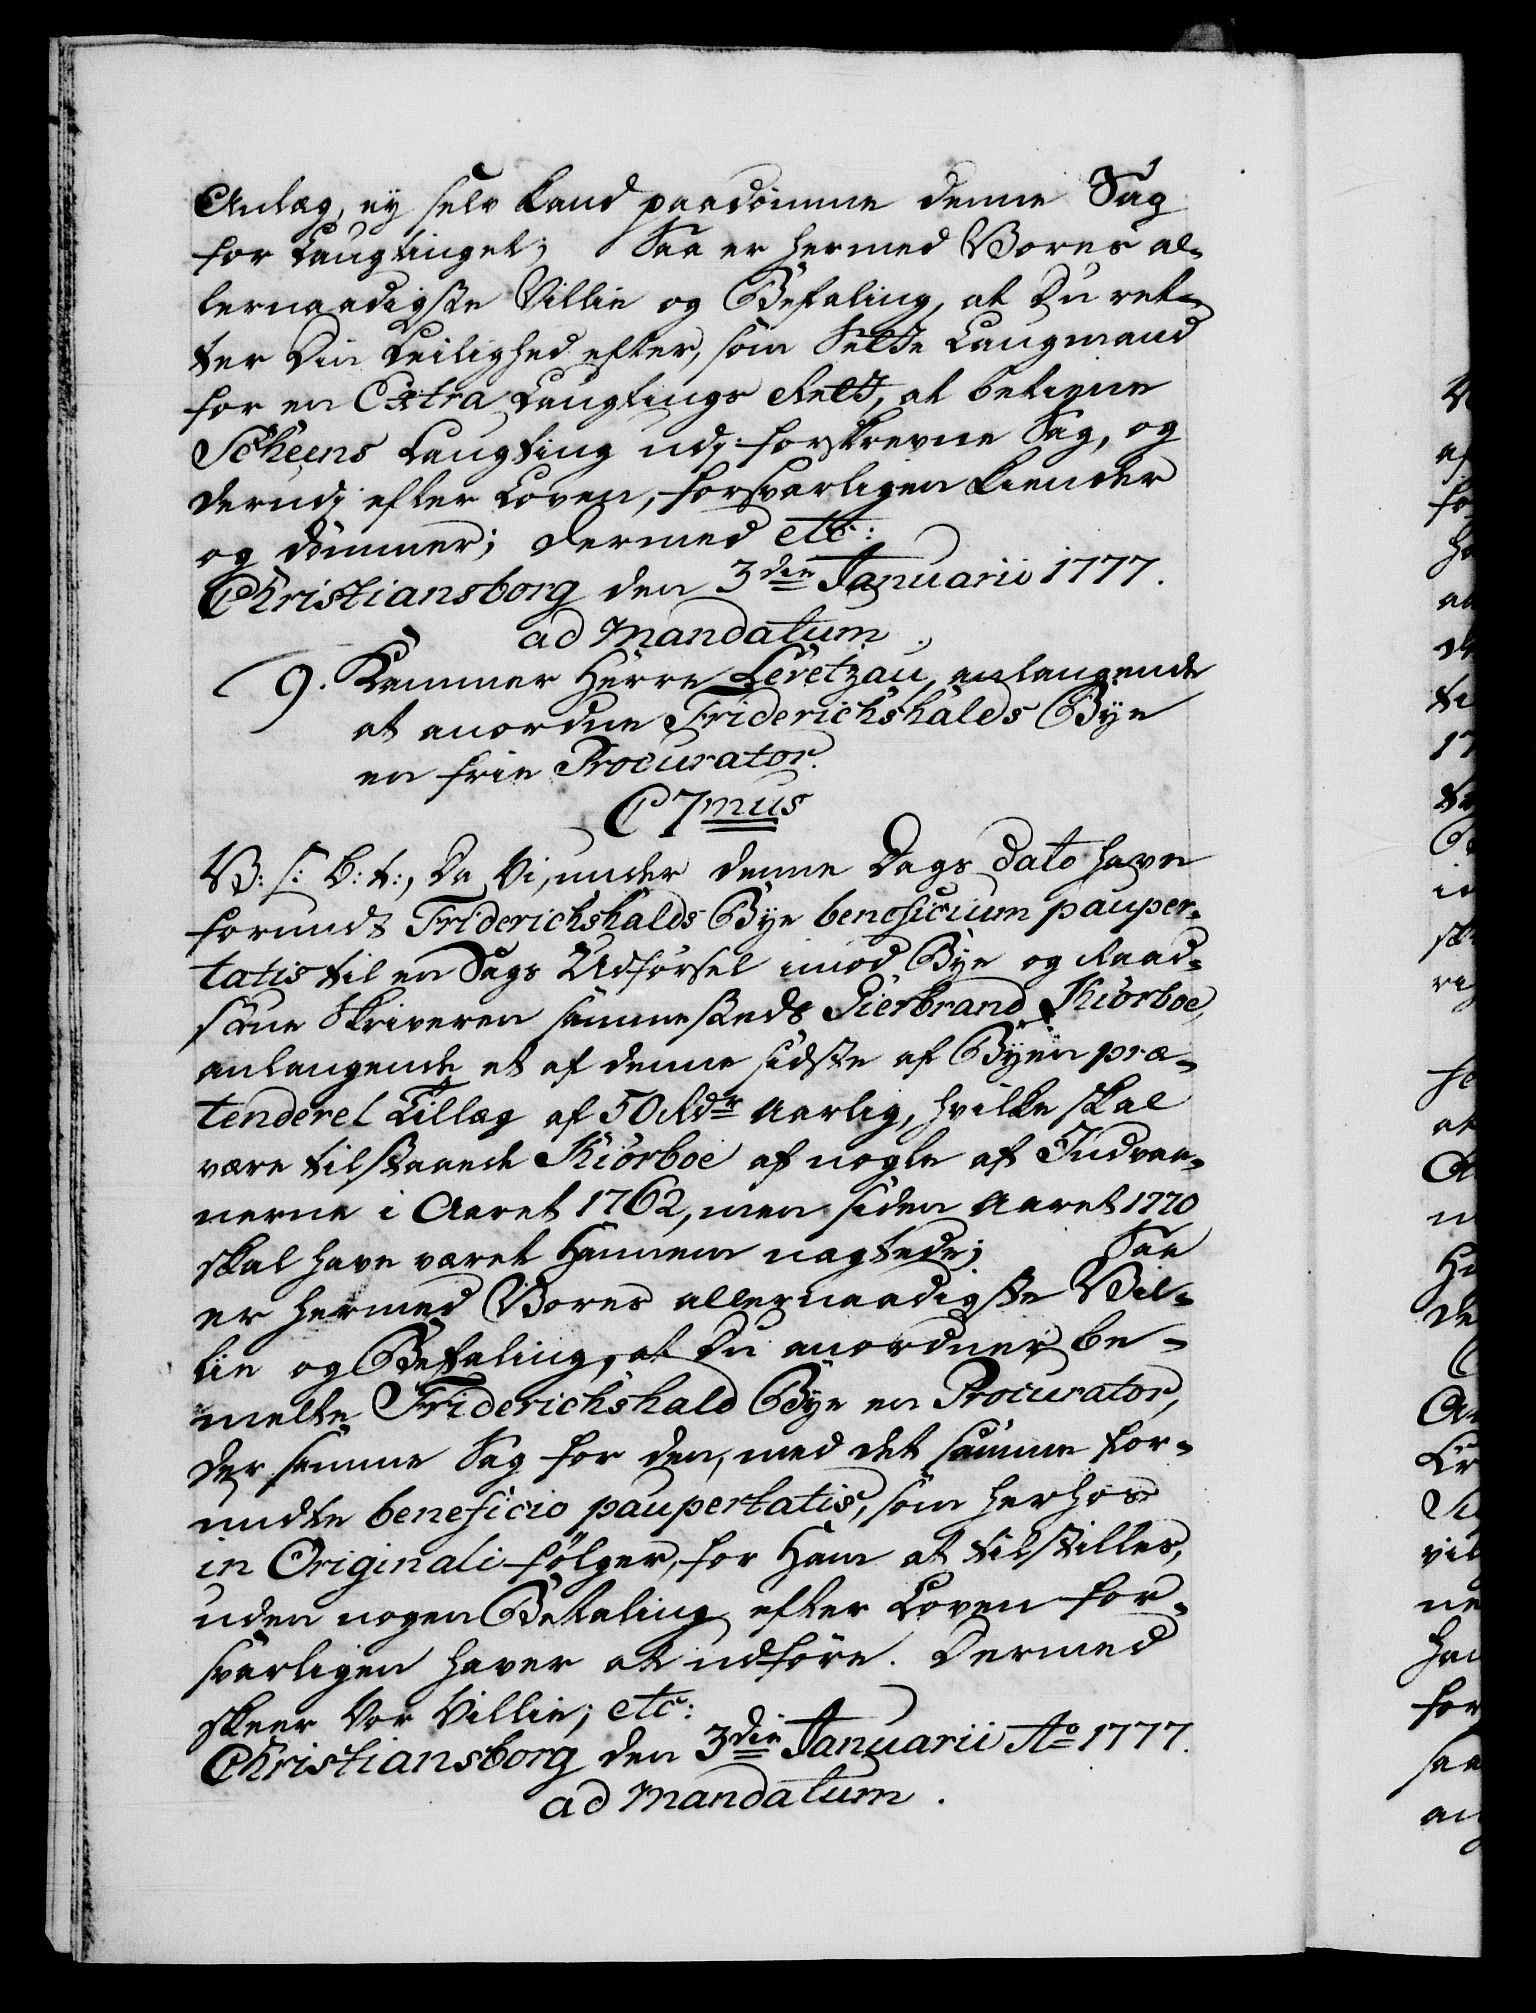 Anlæg, ey selv kand paadömme denne Sag
for Laugtinget; Saa er hermed Vores al-
lernaadigste Villie og Befaling, at Du ret-
ter Din Leilighed efter, som Sette Laugmand
for en Extra Laugtings Rett, at betiene
Scheens Laugting udj forskrevne Sag, og
derudj efter Loven, forsvarligen kiender
og dömmer; dermed etc:
Christiansborg den 3die Januarii 1777.
ad Mandatum.
9. Kammer Herre Levetzau, anlangende
at anordne Friderichshalds Bye
en frie Procurator.
C 7mus
V: S: B: t:, Da Vi, under denne Dags dato have
forundt Friderichshalds Bye beneficium pauper-
tatis til en Sags Udförsel imod Bye og Raad-
stue Skriveren sammesteds Gierbrand Kiörboe,
anlangende et af denne sidste af Byen præ-
tenderet Tillæg af 50 Rdr Aarlig, hvilke skal
være tilstaaede Kiörboe af nogle af Indvaa-
nerne i Aaret 1762, men siden Aaret 1770
skal have været Hannem nægtede; Saa
er hermed Vores allernaadigste Vil-
lie og Befaling, at Du anordner be-
melte Friderichshald Bye en Procurator,
der samme Sag for den, med det samme for-
undte beneficio paupertatis, som herhos
in Originali fölger, for Ham at tilstilles,
uden nogen Betaling efter Loven for-
svarligen haver at udföre. Dermed
skeer Vor Villie; etc:
Christiansborg den 3die Januarii Ao 1777.
ad Mandatum.